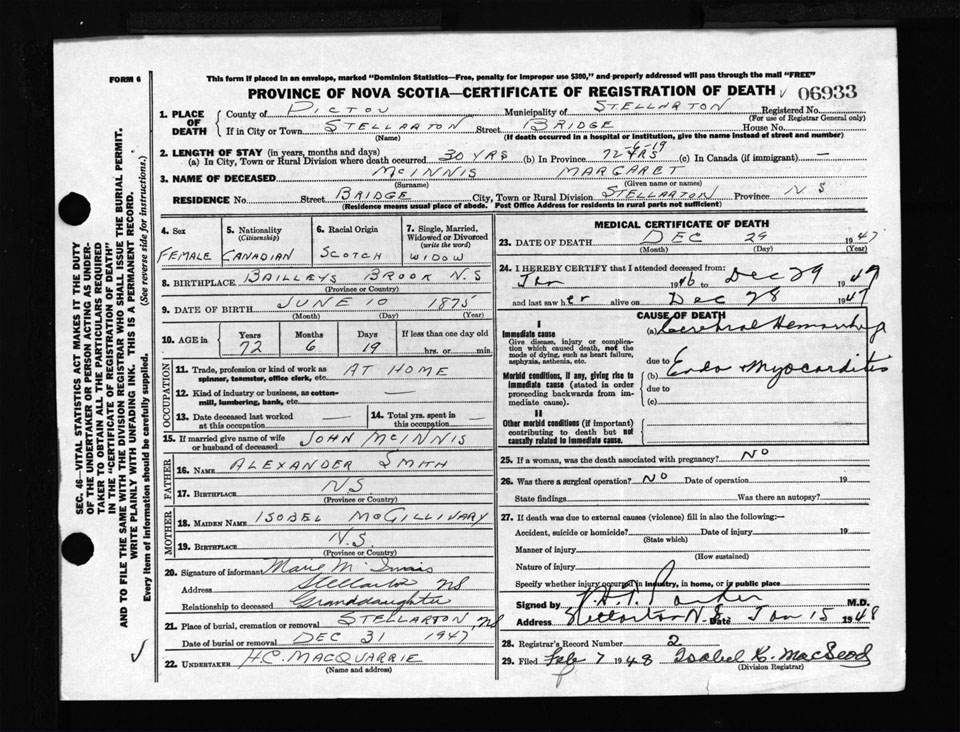 FORM 6
This form if placed in an envelope, marked "Dominion Statistics—Free, penalty for improper use $300," and properly addressed will pass through the mail "FREE"
PROVINCE OF NOVA SCOTIA—CERTIFICATE OF REGISTRATION OF DEATH 06933
1. PLACE OF DEATH { County of PICTOU Municipality of STELLARTON Registered No.
(For use of Registrar General only)
If in City or Town STELLARTON Street BRIDGE House No.
(Name) (If death occurred in a hospital or institution, give the name instead of street and number)
2. LENGTH OF STAY (in years, months and days)
(a) In City, Town or Rural Division where death occurred 30 YRS (b) In Province 72 YRS -6-19 (c) In Canada (if immigrant) —
3. NAME OF DECEASED McINNIS MARGARET
(Surname) (Given name or names)
RESIDENCE No. Street BRIDGE City, Town or Rural Division STELLARTON Province NS
(Residence means usual place of abode. Post Office Address for residents in rural parts not sufficient)
4. Sex 5. Nationality (Citizenship) 6. Racial Origin 7. Single, Married, Widowed or Divorced (write the word)
FEMALE CANADIAN SCOTCH WIDOW
8. BIRTHPLACE BAILLEYS BROOK N.S
(Province or Country)
9. DATE OF BIRTH JUNE 10 1875
(Month) (Day) (Year)
10. AGE in { Years Months Days If less than one day old
72 6 19 hrs. or min.
OCCUPATION
11. Trade, profession or kind of work as spinner, teamster, office clerk, etc. AT HOME
12. Kind of industry or business, as cotton-mill, lumbering, bank, etc. —
13. Date deceased last worked at this occupation — 14. Total yrs. spent in this occupation —
15. If married give name of wife or husband of deceased JOHN McINNIS
FATHER
16. NAME ALEXANDER SMITH
17. BIRTHPLACE NS
(Province or Country)
MOTHER
18. MAIDEN NAME ISOBEL McGILLIVARY
19. BIRTHPLACE N.S.
(Province or Country)
20. Signature of informant Marie McInnis
Address Stellarton NS
Relationship to deceased Granddaughter
21. Place of burial, cremation or removal STELLARTON, NS
Date of burial or removal DEC 31 1947
22. UNDERTAKER H.C. MACQUARRIE
(Name and address)
MEDICAL CERTIFICATE OF DEATH
23. DATE OF DEATH DEC 29 1947
(Month) (Day) (Year)
24. I HEREBY CERTIFY that I attended deceased from:
Jan 1946 to Dec 29 1947
and last saw her alive on Dec 28 1947
CAUSE OF DEATH
I
Immediate cause (a) Cerebral Hemorrhage
Give disease, injury or complication which caused death, not the mode of dying, such as heart failure, asphyxia, asthenia, etc.
due to
Morbid conditions, if any, giving rise to immediate cause (stated in order proceeding backwards from immediate cause).
(b) Endo Myocarditis
due to
(c)
II
Other morbid conditions (if important) contributing to death but not causally related to immediate cause.
25. If a woman, was the death associated with pregnancy? NO
26. Was there a surgical operation? NO Date of operation 19
State findings Was there an autopsy?
27. If death was due to external causes (violence) fill in also the following:—
Accident, suicide or homicide? Date of injury 19
(State which)
Manner of injury
(How sustained)
Nature of injury
Specify whether injury occurred in industry, in home, or in public place
Signed by M.D.
Address Stellarton N.S. Date Jan 15 1948
28. Registrar's Record Number 2
29. Filed Feb 7 1948 Isabel K. MacLeod
(Division Registrar)
SEC. 46—VITAL STATISTICS ACT MAKES IT THE DUTY
OF THE UNDERTAKER OR PERSON ACTING AS UNDER-
TAKER TO OBTAIN ALL THE PARTICULARS REQUIRED
IN THE "CERTIFICATE OF REGISTRATION OF DEATH"
AND TO FILE THE SAME WITH THE DIVISION REGISTRAR WHO SHALL ISSUE THE BURIAL PERMIT.
WRITE PLAINLY WITH UNFADING INK. THIS IS A PERMANENT RECORD.
Every item of information should be carefully supplied. (See reverse side for instructions.)